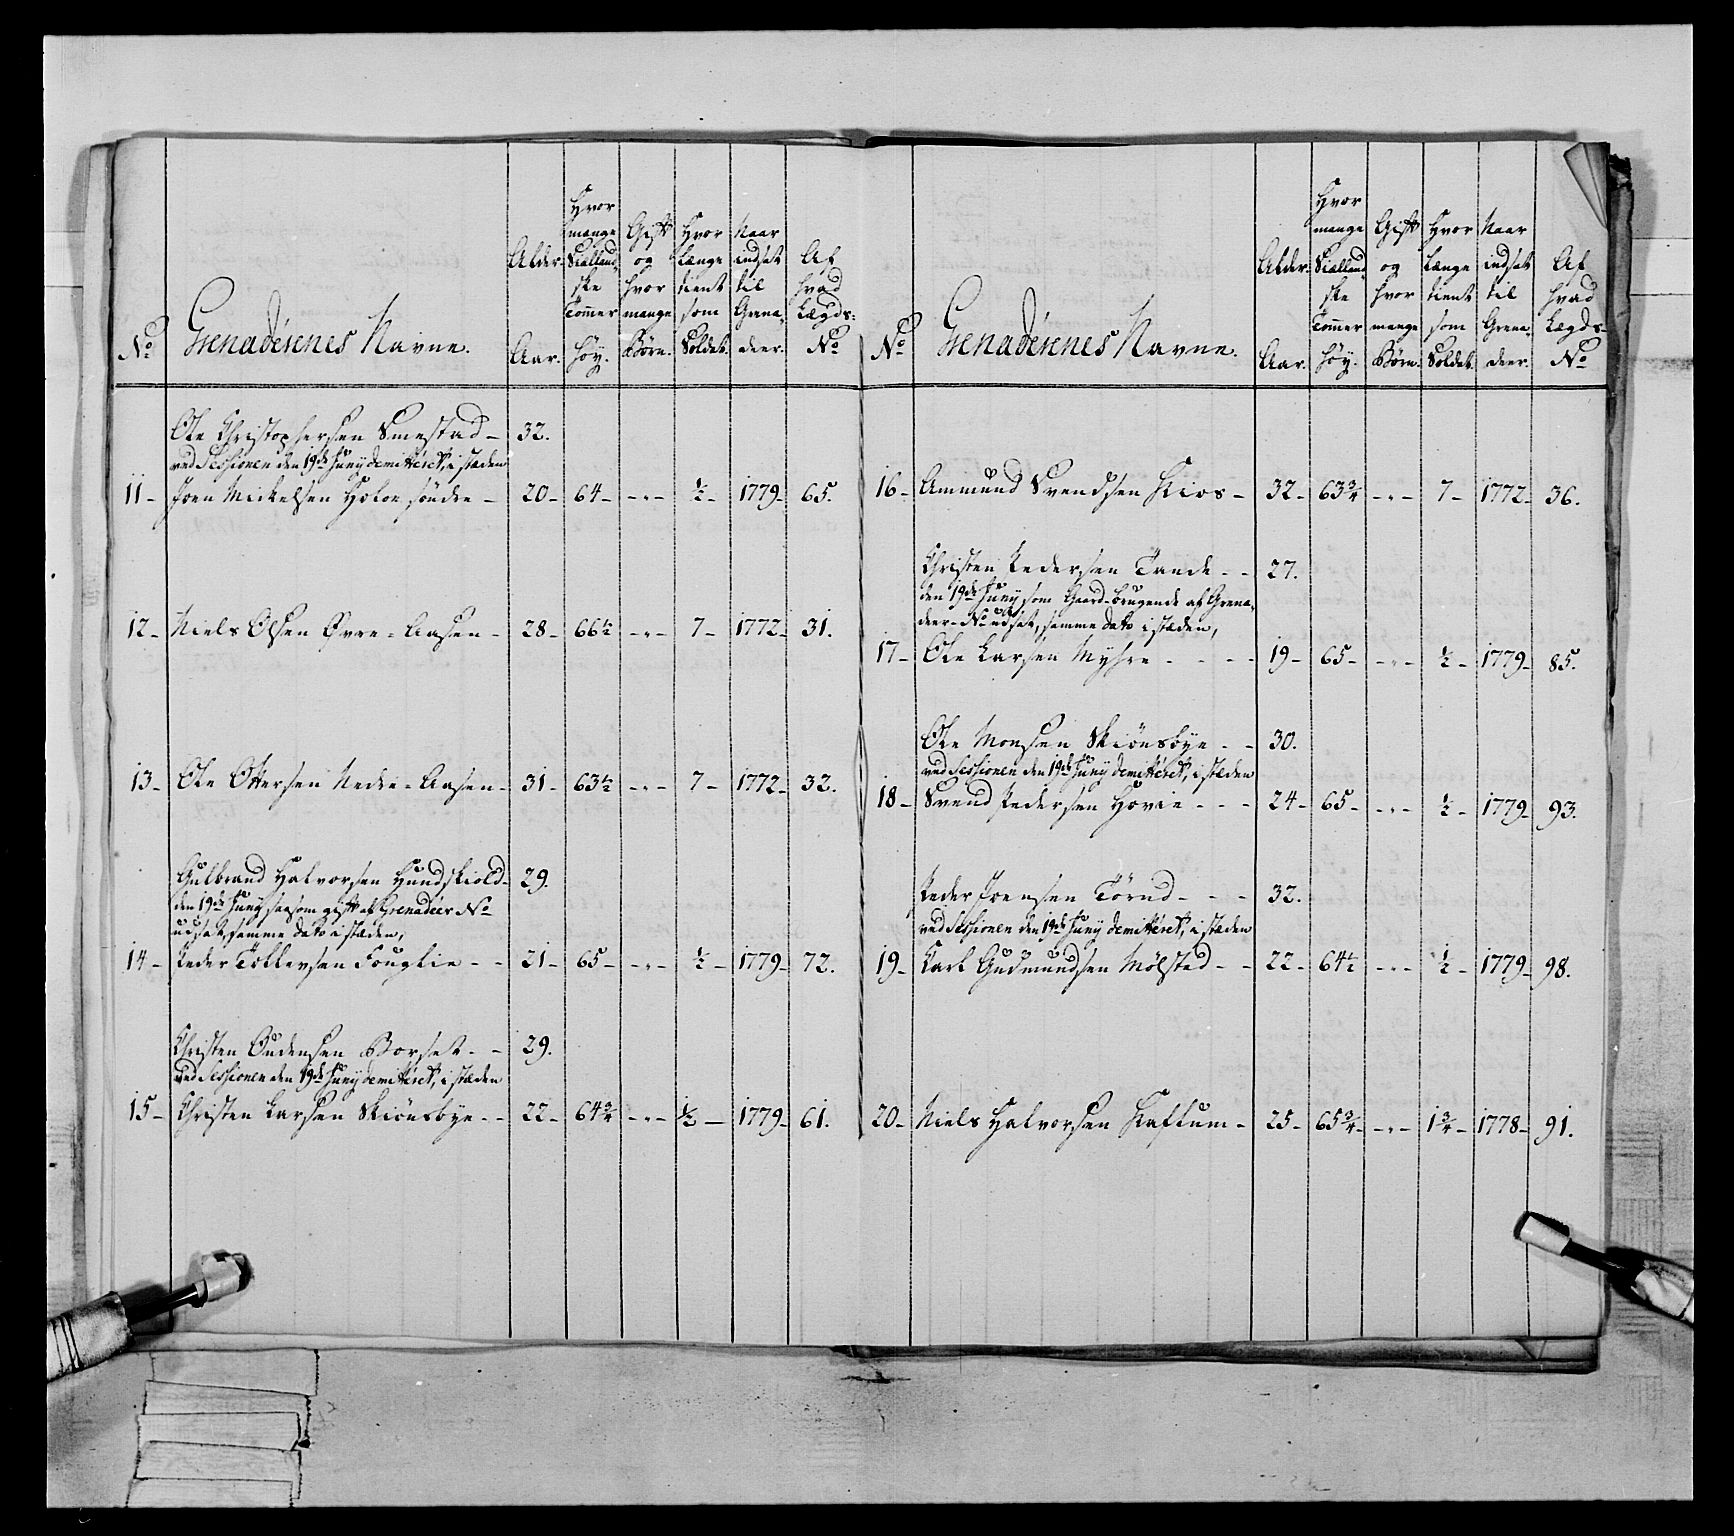 No
Grenadérenes Navne.
Alder. Aar.
Hvor mange Siællandske Tommer høy.
Gift og hvor mange Børn.
Hvor længe tient som Soldat.
Naar indsat til Grenadeer.
Af hvad Lægds-No
Ole Christophersen Smestad - 32.
ved Sessionen den 19de Juny demitteret, i stæden
11 - Joen Mickelsen Holoe søndre - 20 - 64 - - " - ½ - 1779 - 65.
12 - Niels Olsen Øvre-Aasen - 28 - 66½ - " - 7 - 1772 - 31.
13 - Ole Ottersen Nedre-Aasen - 31 - 63½ - " - 7 - 1772 - 32.
Gulbrand Halvorsen Hundskiold - 29.
den 19de Juny saasom gift af Grenadéer No
udsat, samme dato i stæden,
14 - Peder Tollevsen Fouglie - - 21 - 65 - - " - ½ - 1779 - 72.
Christen Oudensen Borset - - 29.
ved Sessionen den 19de Juny demitteret, i stæden
15 - Christen Larsen Skiønsbye - - 22 - 64¾ - " - ½ - 1779 - 61.
No
Grenadérenes Navne.
Alder. Aar.
Hvor mange Siællandske Tommer høy.
Gift og hvor mange Børn.
Hvor længe tient som Soldat.
Naar indsat til Grenadeer.
Af hvad Lægds-No
16 - Ammund Svendsen Kios - 32 - 63¾ - " - 7 - 1772 - 36.
Christen Pedersen Tande - - 27.
den 19de Juny som Gaard-brugende af Grena-
deer-No udsat, samme dato i stæden,
17 - Ole Larsen Myhre - - - - 19 - 65 - - " - ½ - 1779 - 85.
Ole Monsen Skiønsbye - - 30.
ved Sessionen den 19de Juny demitteret, i stæden
18 - Svend Pedersen Hovie - - - 24 - 65 - - " - ½ - 1779 - 93.
Peder Joensen Törud - - - 32.
ved Sessionen den 19de Juny demitteret, i stæden
19 - Carl Gudmundsen Mølsted - - 22 - 64½ - " - ½ - 1779 - 98.
20 - Niels Halvorsen Kaftum - 25 - 65¾ - " - 1¾ - 1778 - 91.